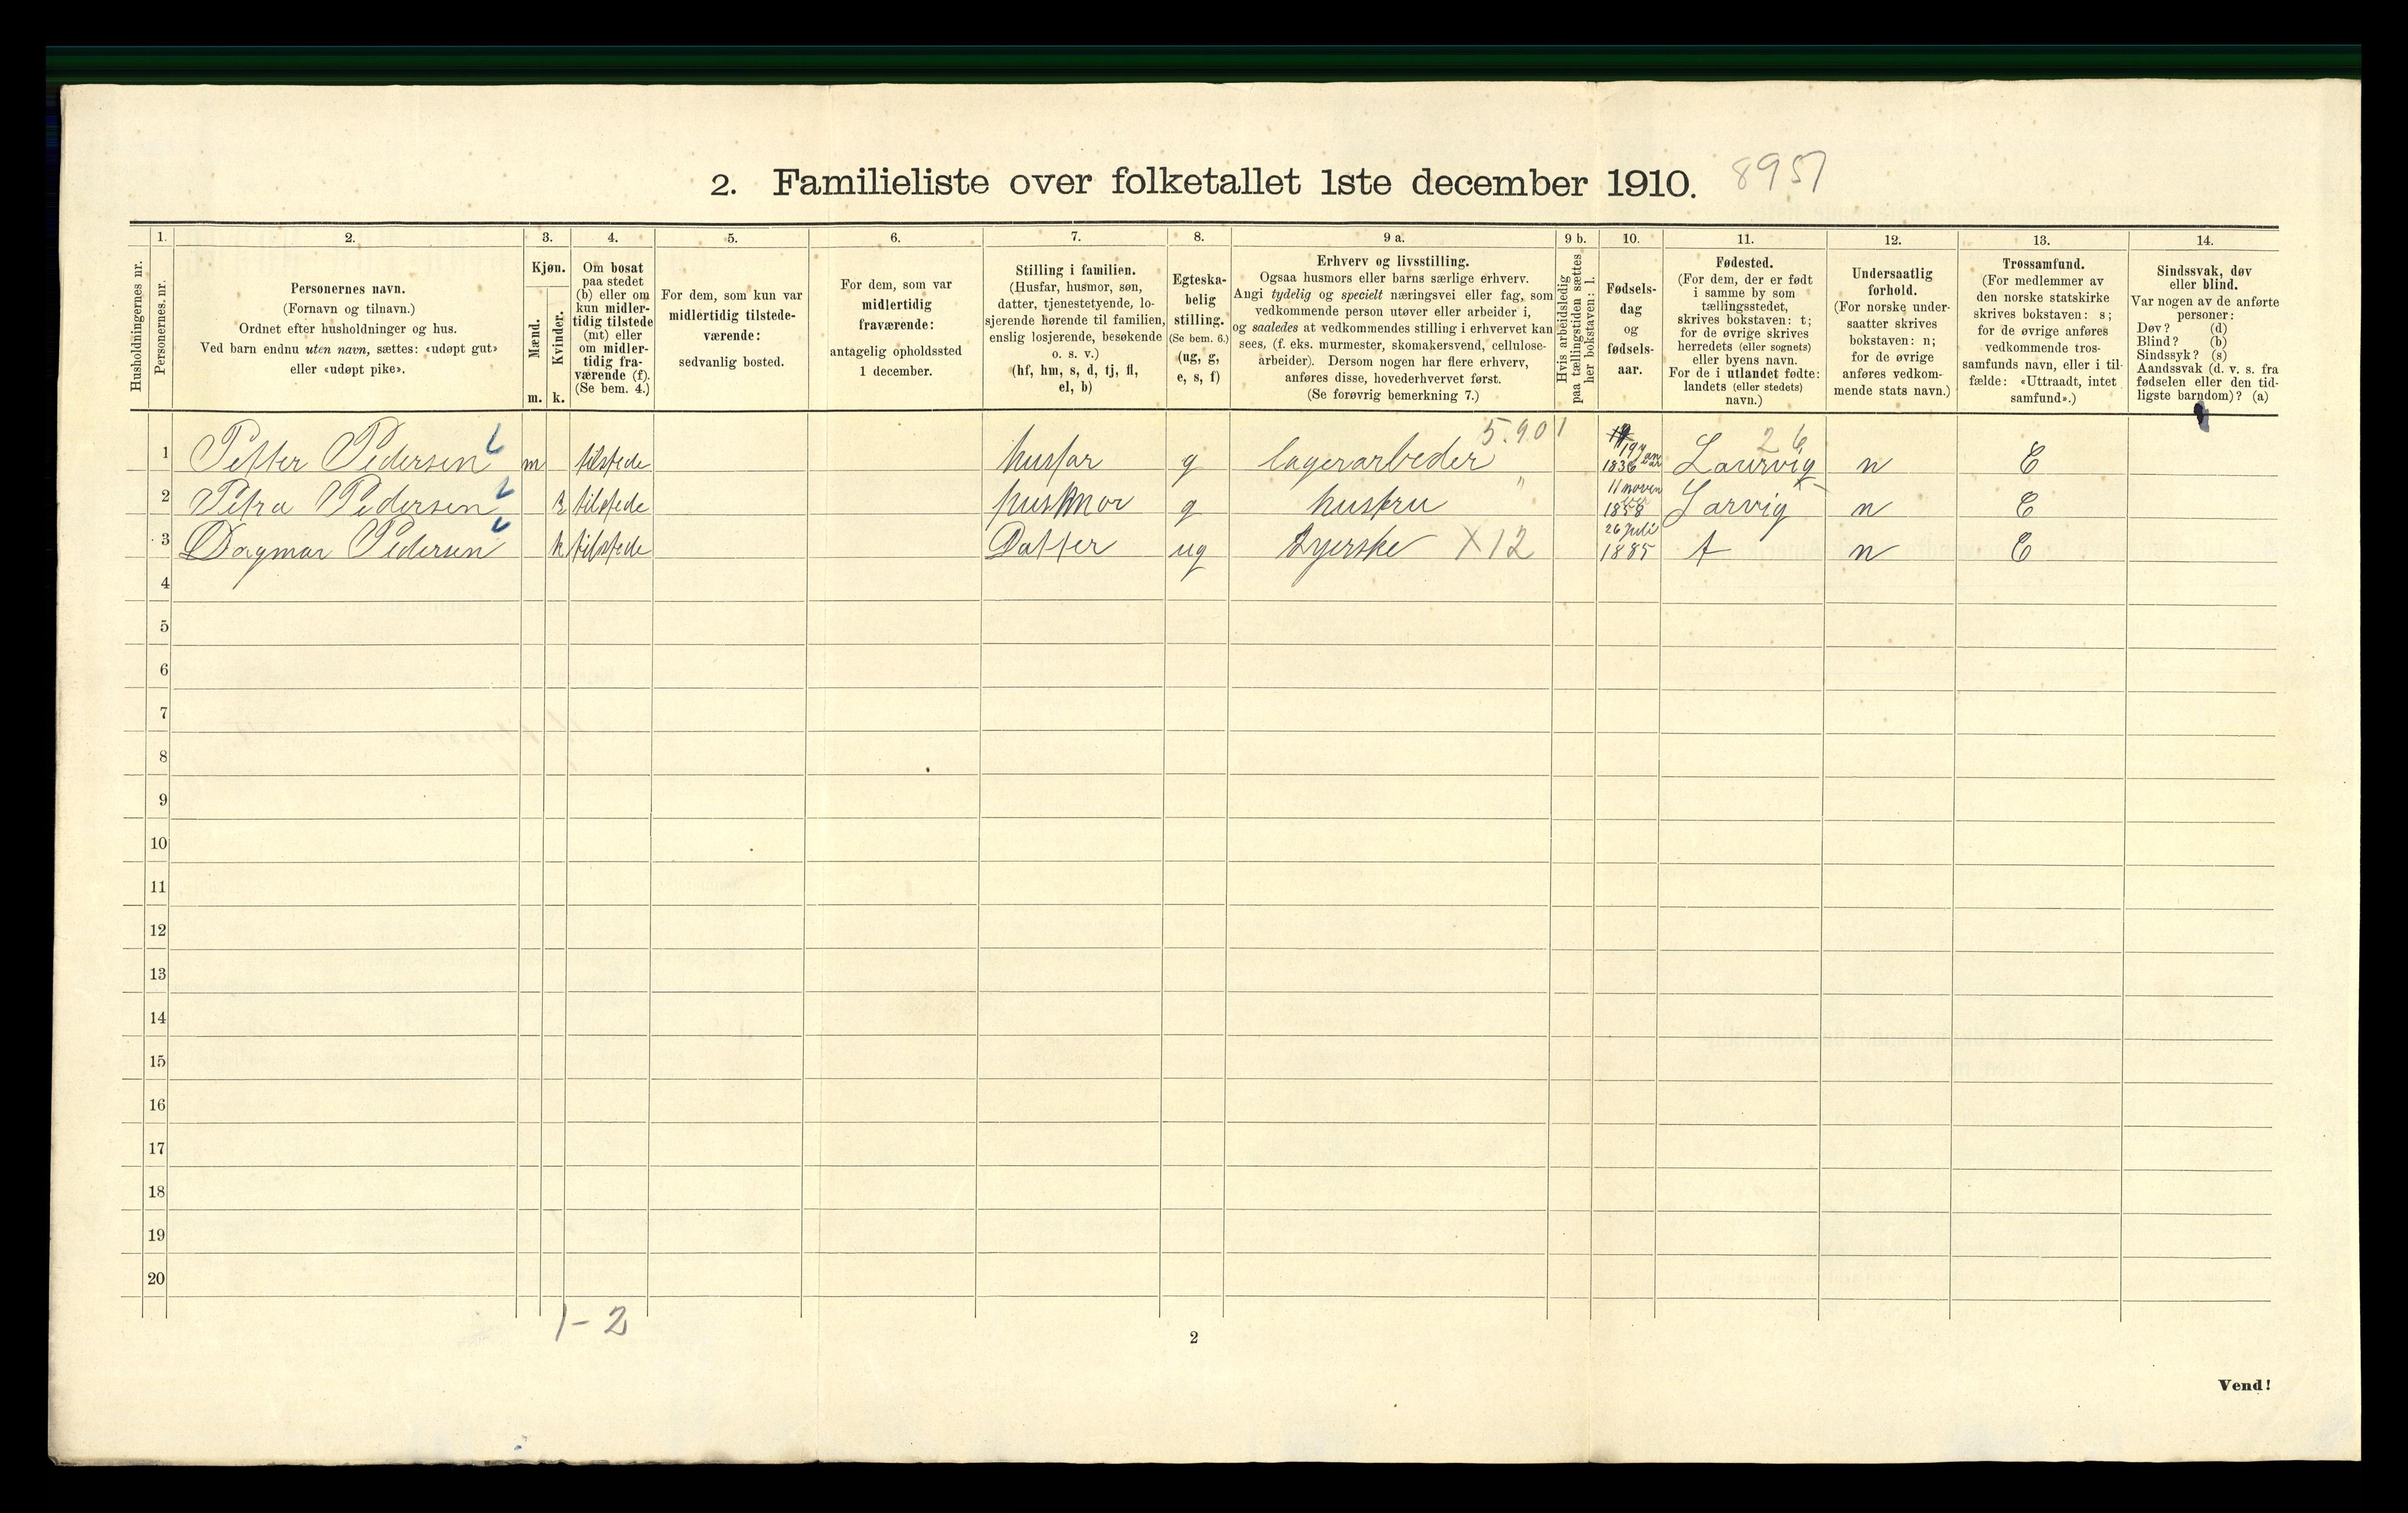 2. Familieliste over folketallet 1ste december 1910. 8957
Husholdningernes nr.
1.
Personernes. nr.
2.
Personernes navn.
(Fornavn og tilnavn.)
Ordnet efter husholdninger og hus.
Ved barn endnu uten navn, sættes: «udøpt gut»
eller «udøpt pike».
3.
Kjøn.
Mænd.
Kvinder.
m. k.
4.
Om bosat
paa stedet
(b) eller om
kun midler-
tidig tilstede
(mt) eller
om midler-
tidig fra-
værende (f).
(Se bem. 4.)
5.
For dem, som kun var
midlertidig tilstede-
værende:
sedvanlig bosted.
6.
For dem, som var
midlertidig
fraværende:
antagelig opholdssted
1 december.
7.
Stilling i familien.
(Husfar, husmor, søn,
datter, tjenestetyende, lo-
sjerende hørende til familien,
enslig losjerende, besøkende
o. s. v.)
(hf, hm, s, d, tj, fl,
el, b)
8.
Egteska-
belig
stilling.
(Se bem. 6.)
(ug, g,
e, s, f)
9 a.
Erhverv og livsstilling.
Ogsaa husmors eller barns særlige erhverv.
Angi tydelig og specielt næringsvei eller fag, som
vedkommende person utøver eller arbeider i,
og saaledes at vedkommendes stilling i erhvervet kan
sees, (f. eks. murmester, skomakersvend, cellulose-
arbeider). Dersom nogen har flere erhverv,
anføres disse, hovederhvervet først.
(Se forøvrig bemerkning 7.)
9 b.
Hvis arbeidsledig
paa tællingstiden sættes
her bokstaven: l.
10.
Fødsels-
dag
og
fødsels-
aar.
11.
Fødested.
(For dem, der er født
i samme by som
tællingsstedet,
skrives bokstaven: t;
for de øvrige skrives
herredets (eller sognets)
eller byens navn.
For de i utlandet fødte:
landets (eller stedets)
navn.)
12.
Undersaatlig
forhold.
(For norske under-
saatter skrives
bokstaven: n;
for de øvrige
anføres vedkom-
mende stats navn.)
13.
Trossamfund.
(For medlemmer av
den norske statskirke
skrives bokstaven: s;
for de øvrige anføres
vedkommende tros-
samfunds navn, eller i til-
fælde: «Uttraadt, intet
samfund».)
14.
Sindssvak, døv
eller blind.
Var nogen av de anførte
personer:
Døv? (d)
Blind? (b)
Sindssyk? (s)
Aandssvak (d. v. s. fra
fødselen eller den tid-
ligste barndom)? (a)
5.901 26
1 Petter Pedersen m tilstede husfar g lagerarbeder 19 1836 Laurvig n E
2 Petra Pedersen k tilstede husmor g hustru " 11 noven 1858 Larvig n E
3 Dagmar Pedersen k tilstede Datter ug Syerske X12 26 Juli 1885 t n E
4
5
6
7
8
9
10
11
12
13
14
15
16
17
18
19
20
1-2
2
Vend!